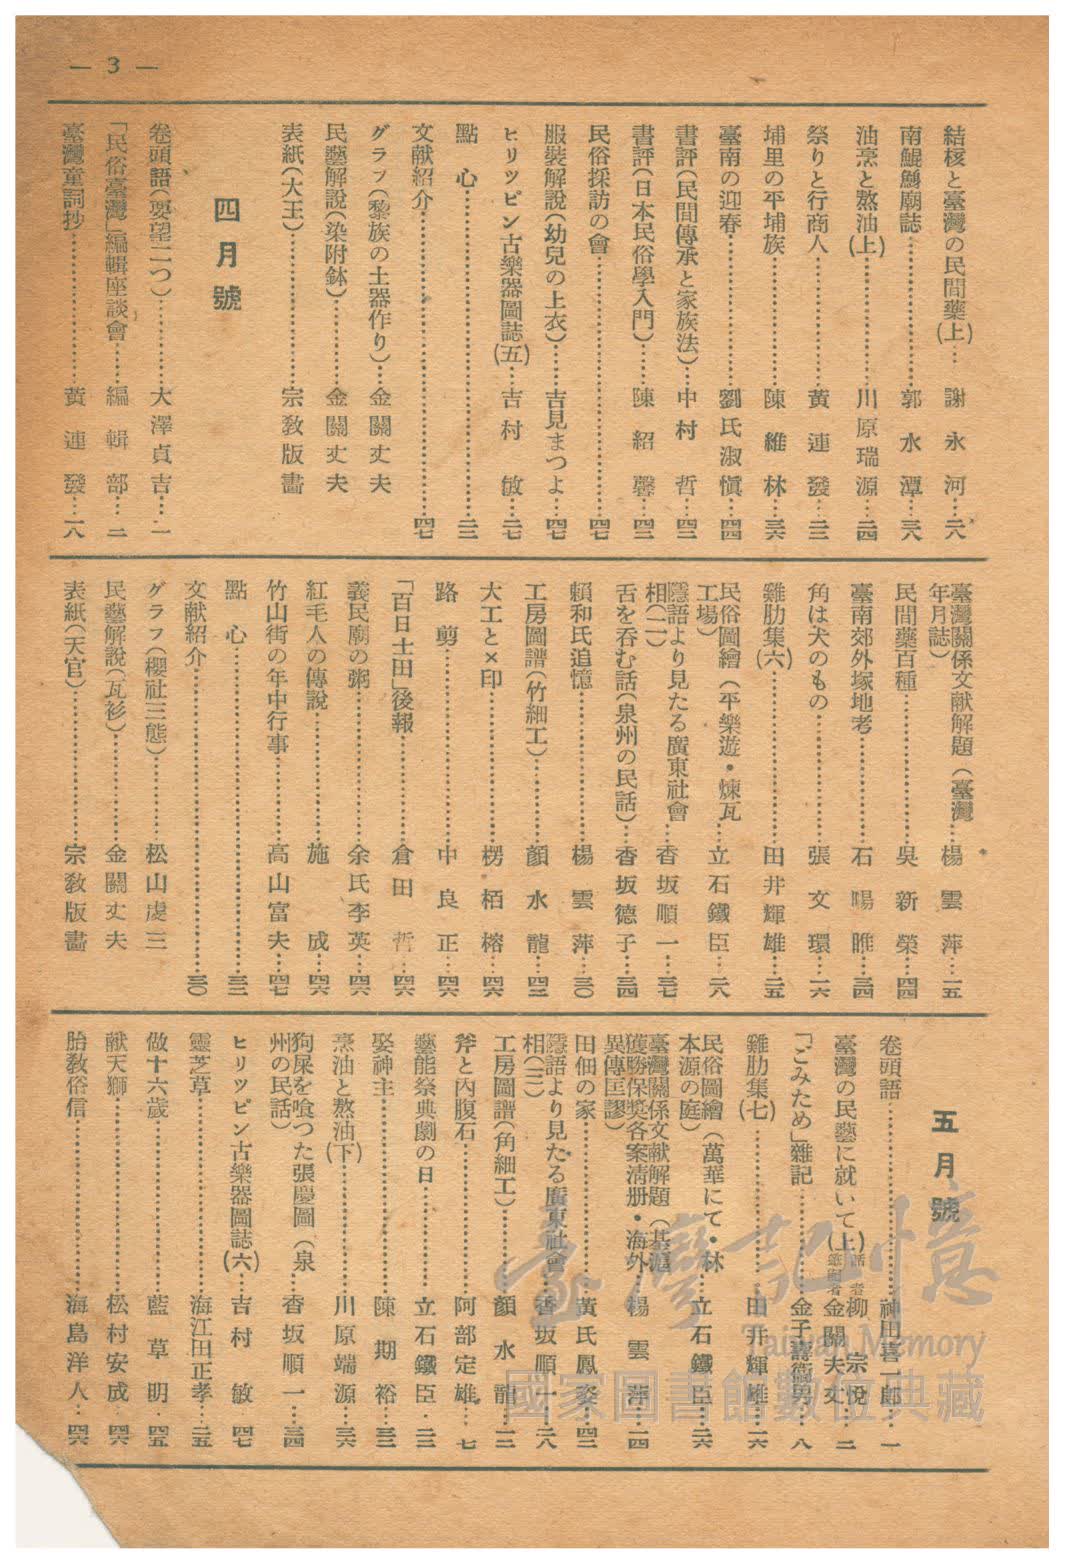 — 3 —
結核と臺灣の民間藥(上)……謝永河…二八
南鯤鯓廟誌……郭水潭…三八
油烹と熬油(上)……川原瑞源…二四
祭りと行商人……黃連發…三二
埔里の平埔族……陳維林…三六
臺南の迎春……劉氏淑愼…四四
書評(民間傳承と家族法)……中村哲…四三
書評(日本民俗學入門)……陳紹馨…四三
民俗採訪の會……四七
服裝解說(幼兒の上衣)……吉見まつよ…四七
ヒリツピン古樂器圖誌(五)……吉村敏…二七
點心……三三
文献紹介……四七
グラフ(黎族の土器作り)……金關丈夫
民藝解說(染附鉢)……金關丈夫
表紙(大王)……宗敎版畵
四月號
卷頭語(要望二つ)……大澤貞吉…一
「民俗臺灣」編輯座談會……編輯部…二
臺灣童詞抄……黃連發…一八
臺灣關係文献解題(臺灣
年月誌)……楊雲萍…一五
民間藥百種……吳新榮…四四
臺南郊外塚地考……石暘睢…三四
角は犬のもの……張文環…一六
雞肋集(六)……田井輝雄…二五
民俗圖繪(平樂遊・煉瓦
工場)……立石鐵臣…二八
隱語より見たる廣東社會
相(二)……香坂順一…三七
舌を吞む話(泉州の民話)…香坂德子…三四
賴和氏追憶……楊雲萍…三〇
工房圖譜(竹細工)……顏水龍…四三
大工と×印……楞栢榕…四六
路剪……中良正…四六
「百日土田」後報……倉田哲…四六
義民廟の粥……余氏李英…四六
紅毛人の傳說……施成…四六
竹山街の年中行事……高山富夫…四七
點心……三三
文献紹介……三〇
グラフ(櫻社三態)……松山虔三
民藝解說(瓦衫)……金關丈夫
表紙(天官)……宗敎版畵
五月號
卷頭語……神田喜一郎…一
臺灣の民藝に就いて(上)話者柳宗悅
金關丈夫…二
「ごみため」雜記……金子壽衞男…八
雞肋集(七)……田井輝雄…二六
民俗圖繪(萬華にて・林
本源の庭)……立石鐵臣…二六
臺灣關係文献解題(基滬
獲勝保奬各案淸册・海外
異傳匡謬)……楊雲萍…一四
田佃の家……黃氏鳳姿…四三
隱語より見たる廣東社會
相(三)……香坂順一…二八
工房圖譜(角細工)……顏水龍…一三
斧と內腹石……阿部定雄…七
藝能祭典劇の日……立石鐵臣…二三
娶神主……陳期裕…三三
烹油と熬油(下)……川原端源…三六
狗屎を喰つた張慶圖(泉
州の民話)……香坂順一…三四
ヒリツピン古樂器圖誌(六)……吉村敏…四七
靈芝草……海江田正孝…三五
做十六歲……藍草明…四五
献天獅……松村安成…四六
胎敎俗信……海島洋人…四六
臺灣記憶
Taiwan Memory
國家圖書館數位典藏